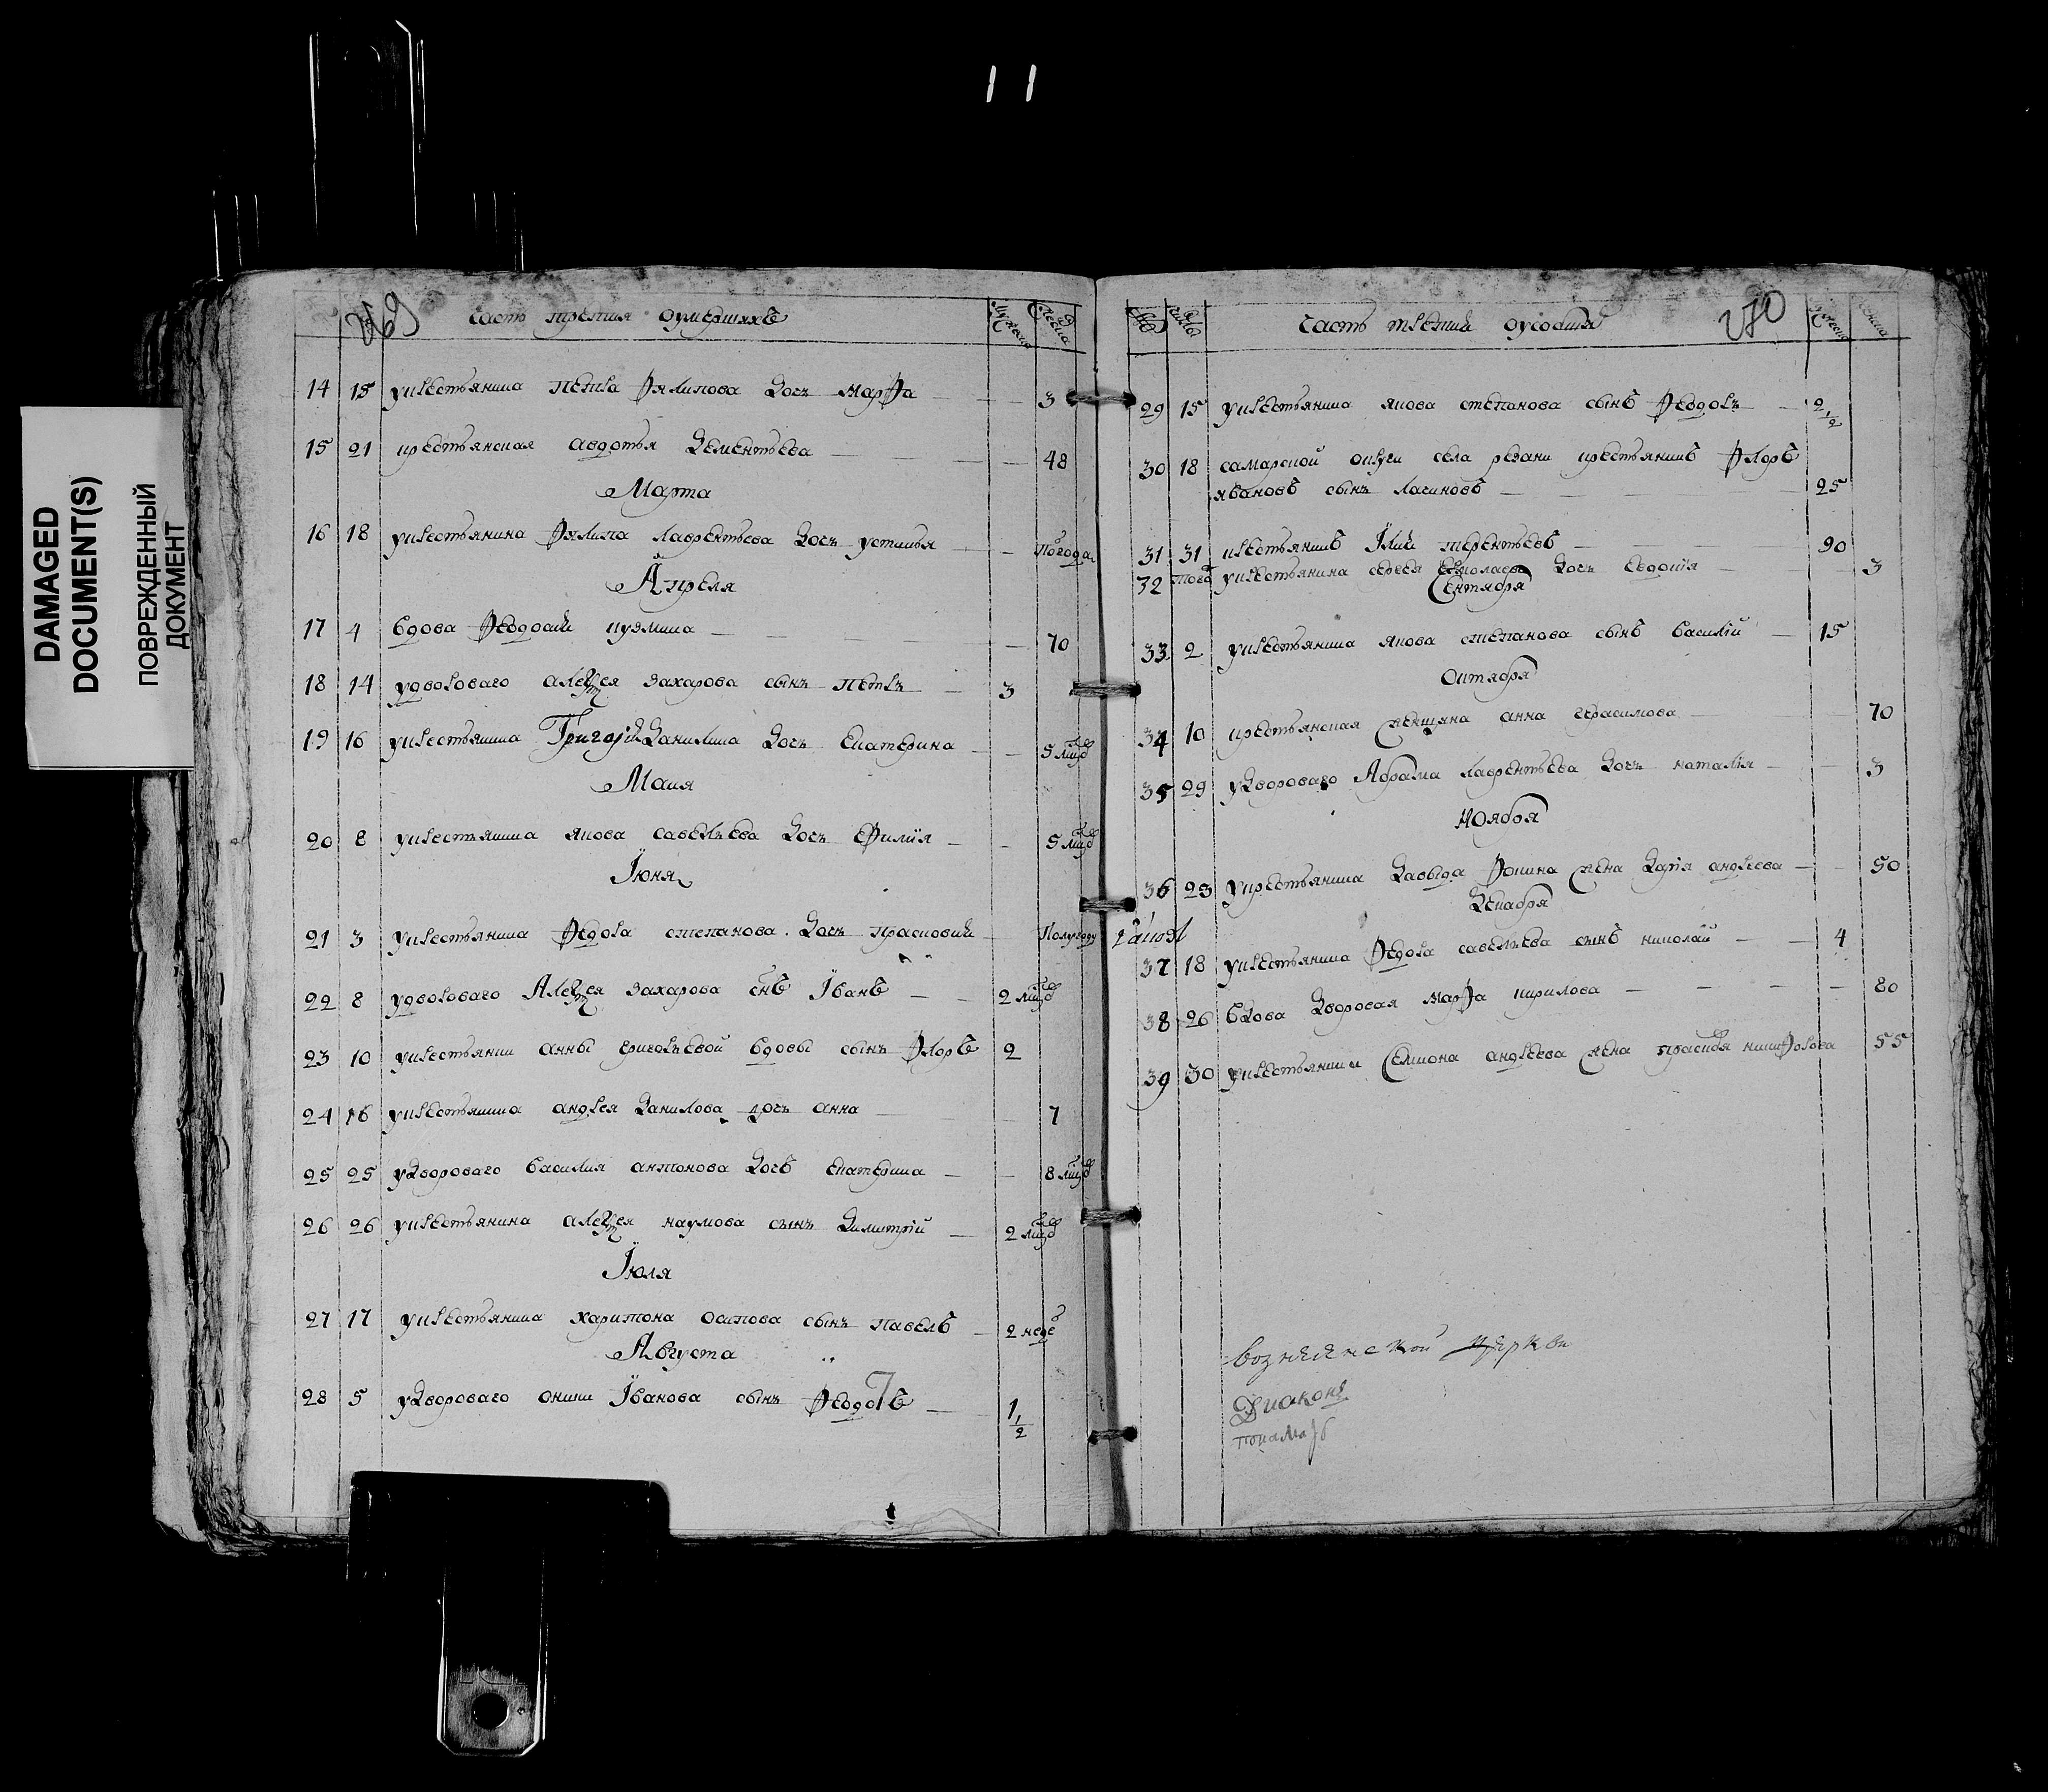 11
DAMAGED
DOCUMENT(S)
ПОВРЕЖДЕННЫЙ
ДОКУМЕНТ
269
часть третия оумершихъ
14 15 укрестьянина петра филипова дочь марфа 3
15 21 крестьянская авдотья дементьева 48
Марта
16 18 укрестьянина филипа лаврентьева дочь устинья полгода
Апреля
17 4 вдова феодосия кузмина 70
18 14 удвороваго алексея захарова сынъ петръ 3
19 16 укрестьянина Григорія данилина дочь екатерина 5
Маия
20 8 укрестьянина якова савельева дочь ефимія 5
Іюня
21 3 укрестьянина федора степанова дочь прасковия полугоду
22 8 удвороваго Алексея захарова снъ Іванъ 2
23 10 укрестьянки анны григорьевой вдовы сынъ флоръ 2
24 16 укрестьянина андрея данилова дочь анна 7
25 25 удвороваго василия антонова дочь екатерина 8
26 26 укрестьянина алексея наумова сынъ димитрій 2
Іюля
27 17 укрестьянина харитона осипова сынъ павелъ 2 неде
Августа
28 5 удвороваго Іванова сынъ 1 1/2
270
часть третия
29 15 укрестьянина якова степанова сынъ феодоръ 2 1/2
30 18 самарской округи села резани крестьянинъ флоръ
ивановъ сынъ 25
31 31 крестьянинъ Илия терентьевъ 90
32 того укрестьянина сергея дочь евдокия 3
Сентября
33 2 укрестьянина якова степанова сынъ василій 15
Октября
34 10 крестьянская женщина анна герасимова 70
35 29 удвороваго Абрама лаврентьева дочь наталія 3
Ноября
36 23 укрестьянина давыда фокина жена дарія андреева 50
Декабря
37 18 укрестьянина федора савельева сынъ николай 4
38 26 вдова дворовая марфа кирилова 80
39 30 укрестьянина Семиона андреева жена никифорова 55
церкви
Диаконъ
понамарь